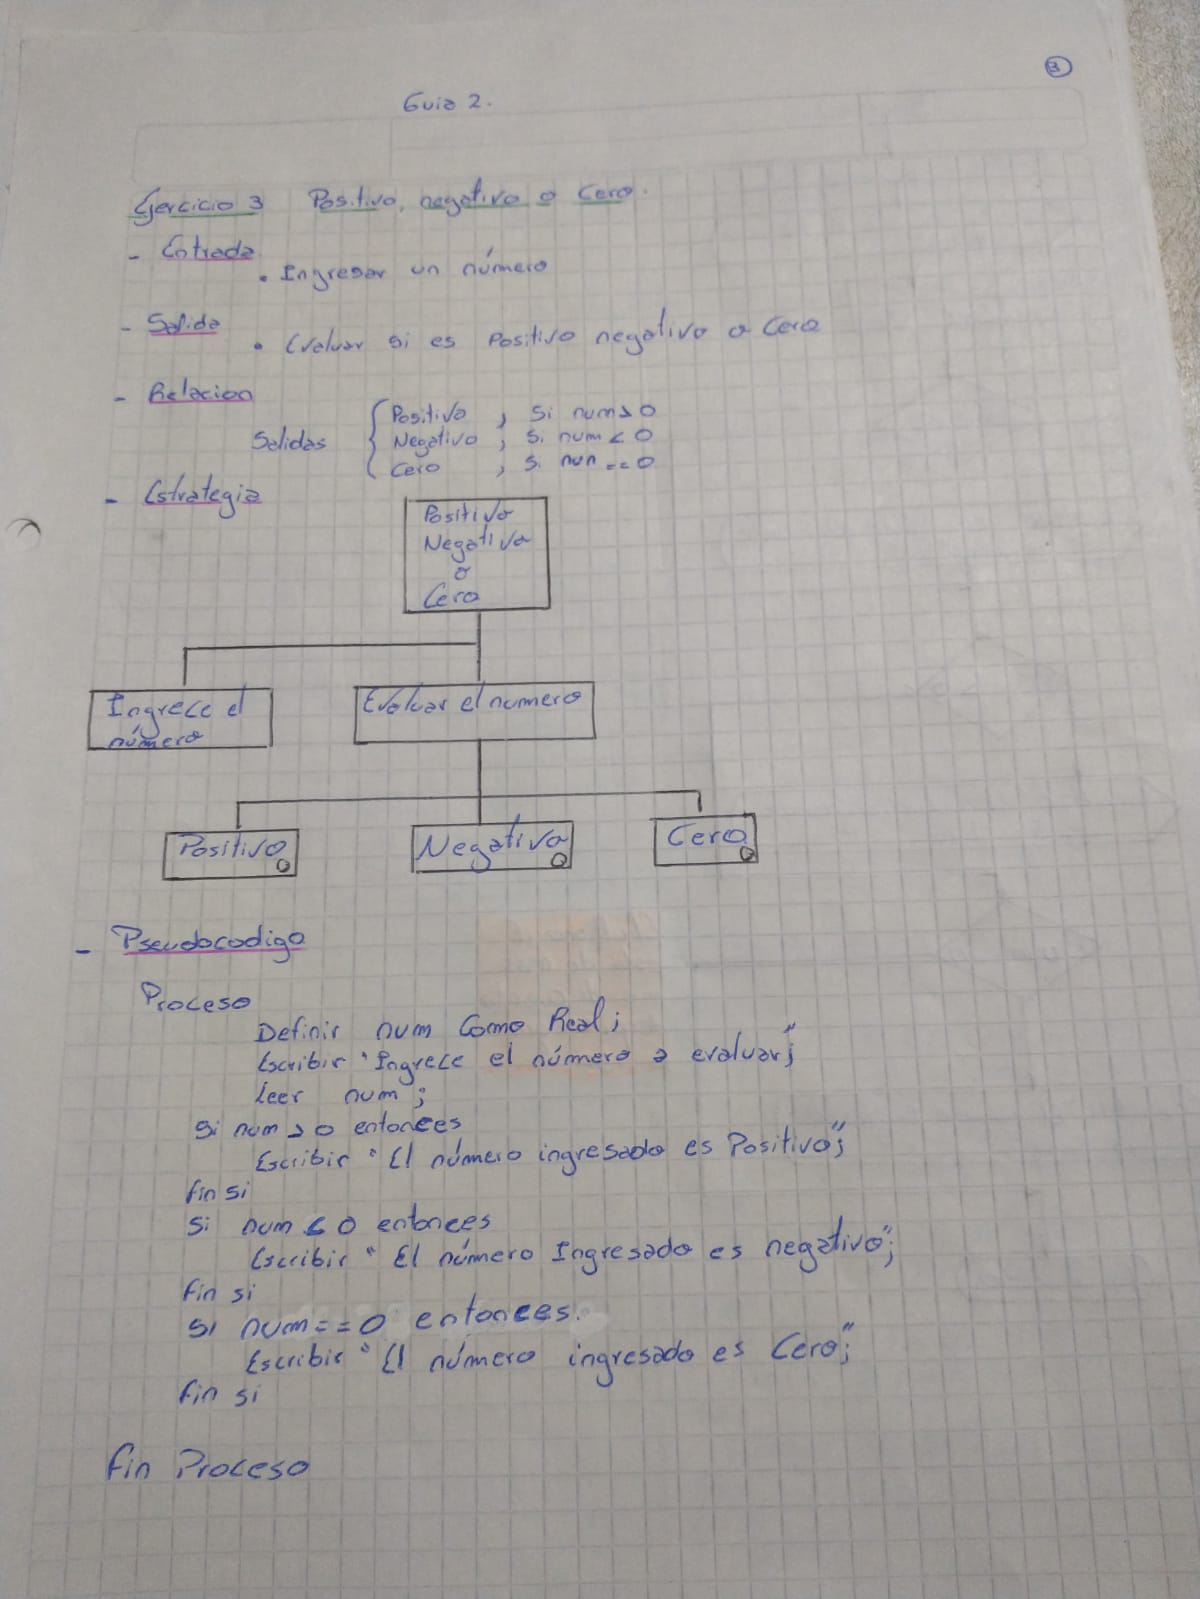 3
Guia 2.
Ejercicio 3 Positivo, negativo o Cero.
- Entrada
• Ingresar un número
- Salida
• Evaluar si es Positivo negativo o Cero
- Relacion
Salidas { Positivo , Si num > 0
Negativo , Si num < 0
Cero , Si nun == 0
- Estrategia
Positivo
Negativo
o
Cero
Ingrece el
número
Evaluar el numero
Positivo
Negativo
Cero
- Pseudocodigo
Proceso
Definir num Como Real;
Escribir "Ingrece el número a evaluar";
Leer num;
Si num > 0 entonces
Escribir "El número ingresado es Positivo";
fin si
Si num < 0 entonces
Escribir "El número Ingresado es negativo";
fin si
Si num == 0 entonces.
Escribir "El número ingresado es Cero";
fin si
fin Proceso